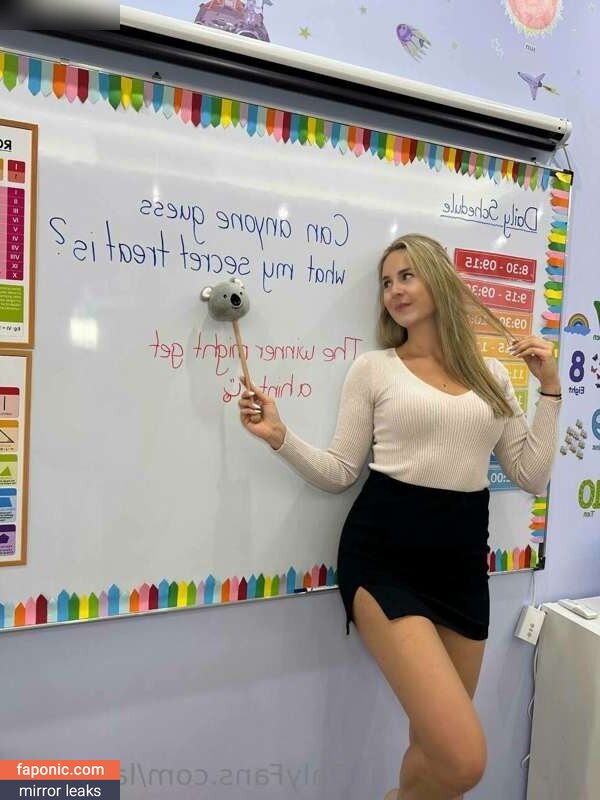 Can anyone guess
what my secret treat is?
The winner might get
a hint
Daily Schedule
8:30 - 09:15
- 9:15
09:30
Eight
Ten
sun
faponic.com
mirror leaks